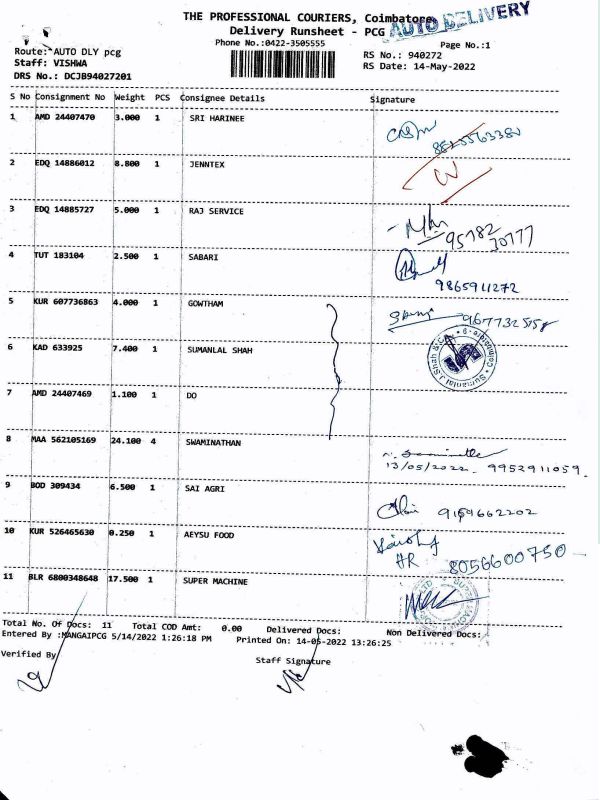 THE PROFESSIONAL COURIERS, Coimbatore
AUTO DELIVERY
Delivery Runsheet - PCG
Phone No.:0422-3505555
Page No.:1
Route: AUTO DLY pcg
RS No.: 940272
Staff: VISHWA
RS Date: 14-May-2022
DRS No.: DCJB94027201
S No Consignment No Weight PCS Consignee Details Signature
1 AMD 24407470 3.000 1 SRI HARINEE
2 EDQ 14886012 8.800 1 JENNTEX
3 EDQ 14885727 5.000 1 RAJ SERVICE
95782
30777
4 TUT 183104 2.500 1 SABARI
9865911272
5 KUR 607736863 4.000 1 GOWTHAM
6 KAD 633925 7.400 1 SUMANLAL SHAH
7 AMD 24407469 1.100 1 DO
8 MAA 562105169 24.100 4 SWAMINATHAN
13/05/2022 9952911059.
9 BOD 309434 6.500 1 SAI AGRI
9159662202
10 KUR 526465630 0.250 1 AEYSU FOOD
HR 8056600750
11 BLR 6800348648 17.500 1 SUPER MACHINE
Total No. Of Docs: 11 Total COD Amt: 0.00 Delivered Docs: Non Delivered Docs:
Entered By :MANGAIPCG 5/14/2022 1:26:18 PM Printed On: 14-05-2022 13:26:25
Verified By
Staff Signature